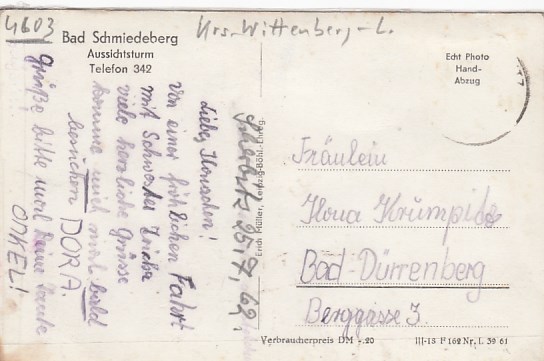 4603
Krs. Wittenberg-L.
Bad Schmiedeberg
Aussichtsturm
Telefon 342
Echt Photo
Hand-
Abzug
Liebes Ilonachen!
Von einer fröhlichen Fahrt
mit Schwester
viele herzliche Grüsse
komme mich mal bald
besuchen DORA.
Grüße bitte mal Deine Tante
ONKEL!
25.7.62.
Erich Müller, Leipzig-Böhl.-Ehrbg.
Fräulein
Ilona Krümpitz
Bad-Dürrenberg
Berggasse 3.
Verbraucherpreis DM -.20
III-18 F 162 Nr. L 39 61